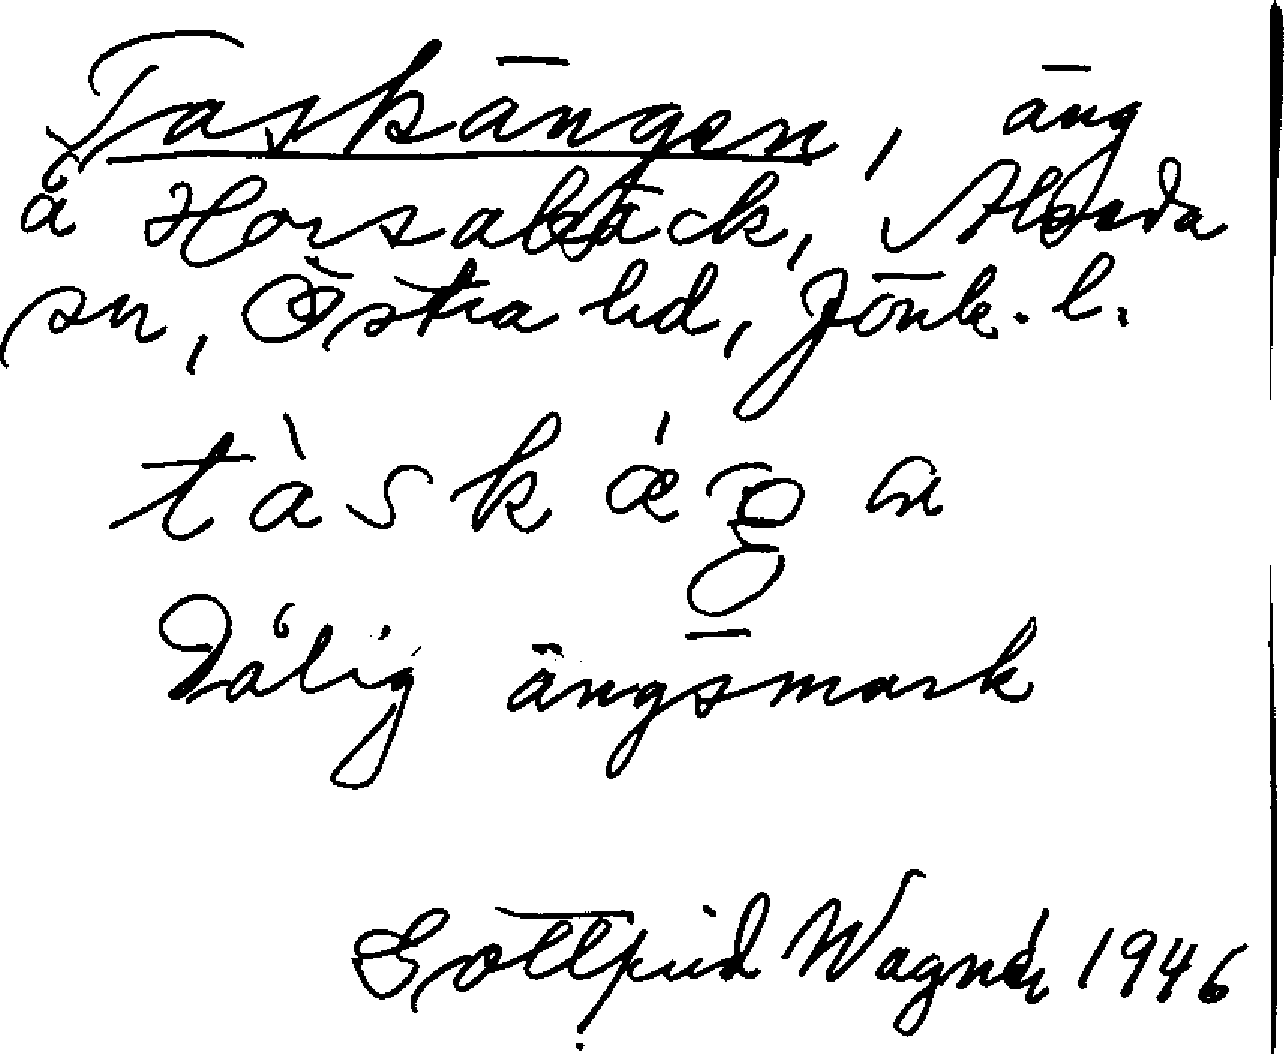 Taskängen, äng
å Horsabäck, Alseda
sn, Östra hd, Jönk. l.
tàskǽŋən
Dålig ängsmark
Gottfrid Wagnér 1946